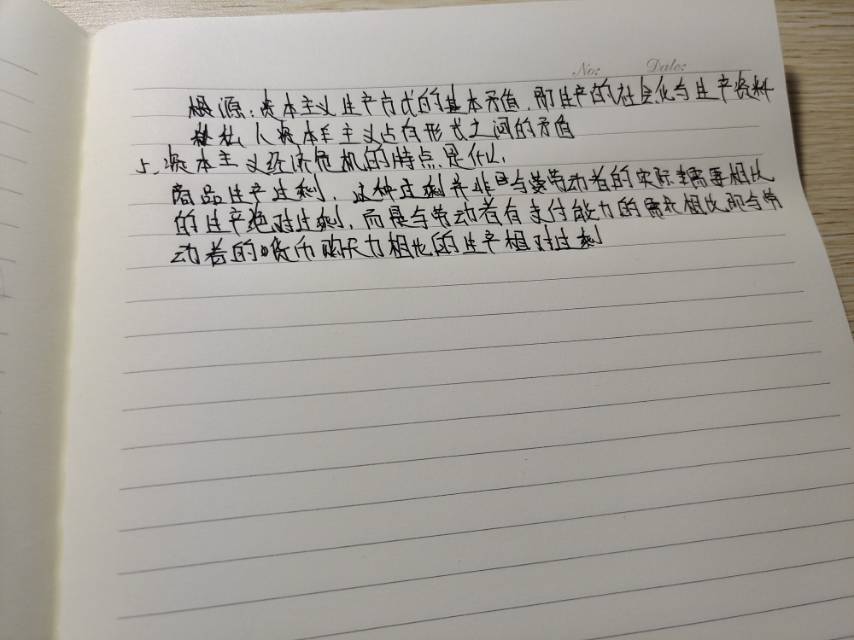 No: Date:
根源:资本主义生产方式的基本矛盾,即生产的社会化与生产资料
私人资本主义占有形式之间的矛盾
5、资本主义经济危机的特点是什么,
商品生产过剩,这种过剩并非与劳动者的实际需要相比
的生产绝对过剩,而是与劳动者有支付能力的需求相比即与劳
动者的货币购买力相比的生产相对过剩